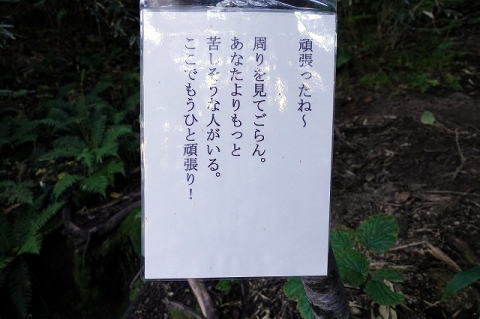 頑張ったね～
周りを見てごらん。
あなたよりもっと
苦しそうな人がいる。
ここでもうひと頑張り！